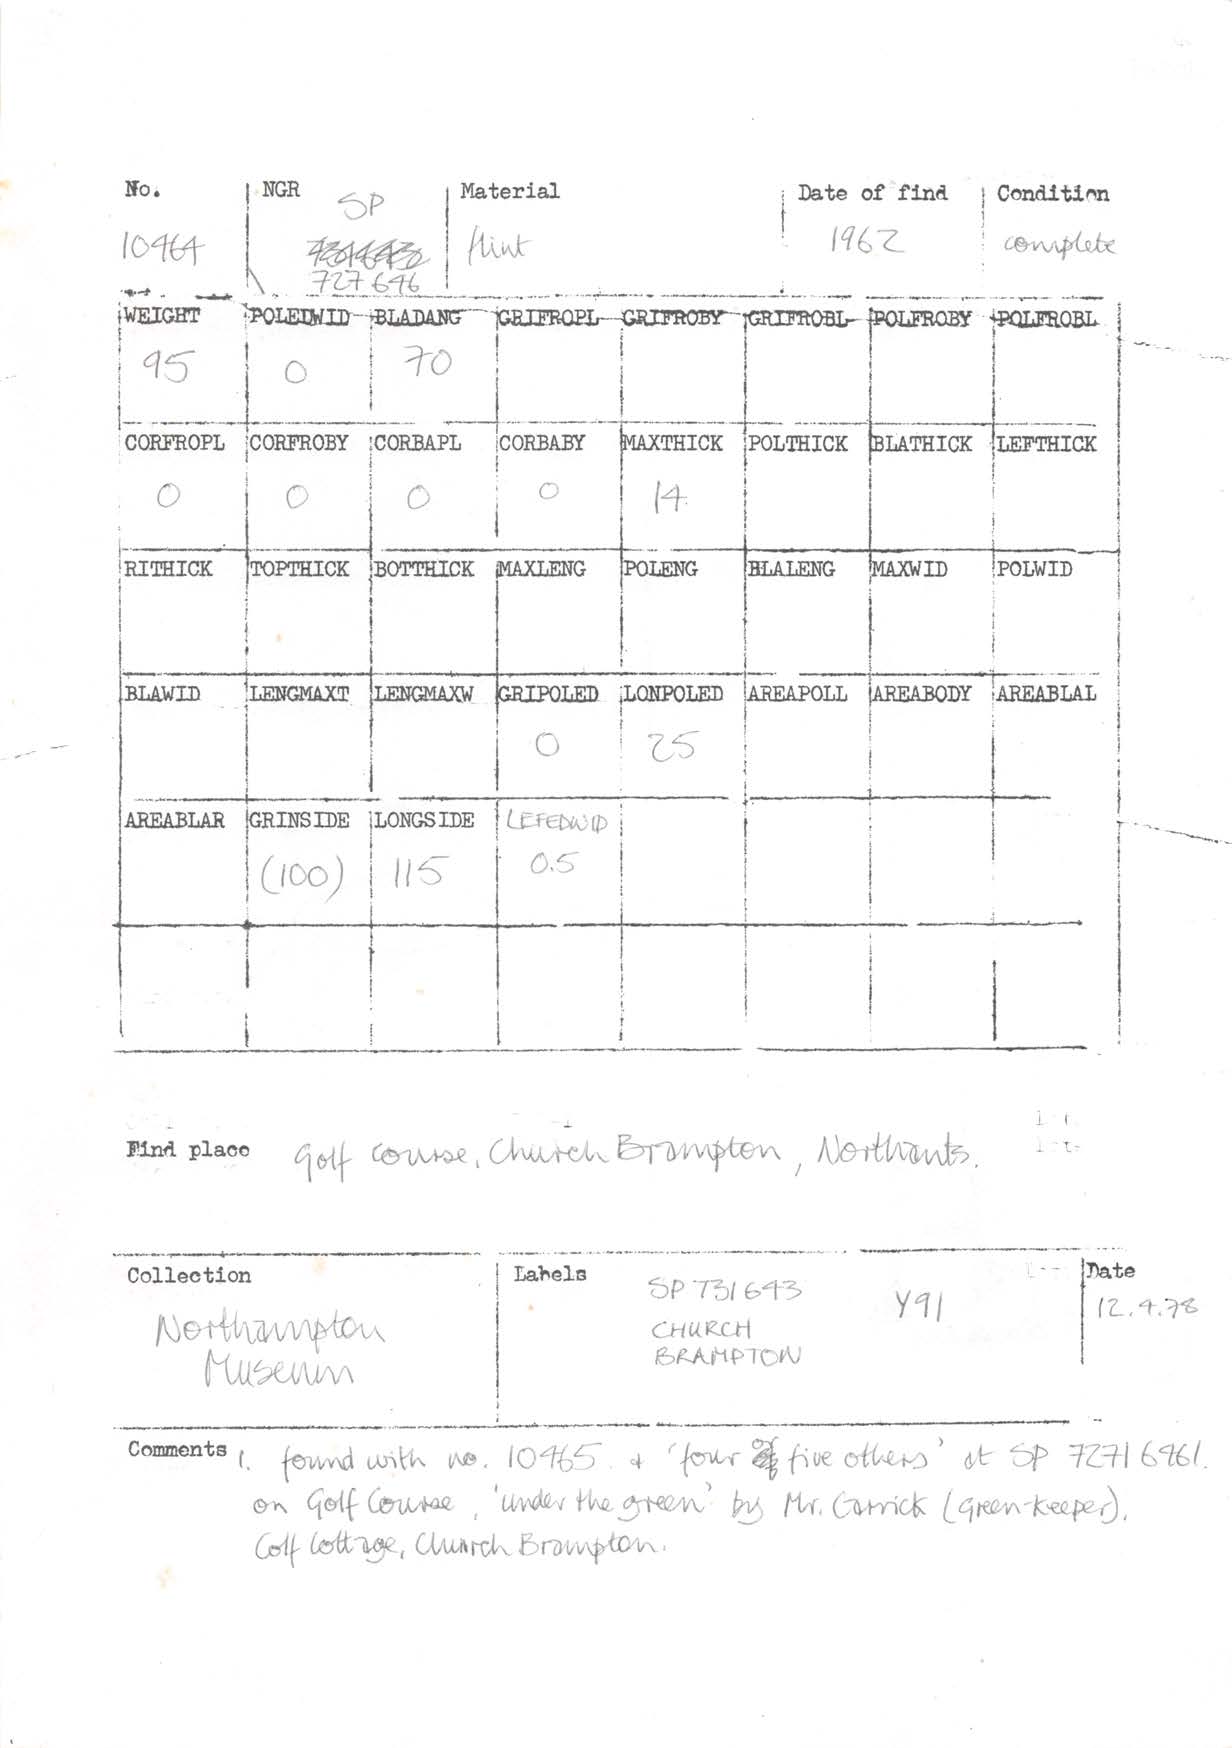 No. NGR Material Date of find Condition
SP
10464 flint 1962 complete
727646
WEIGHT POLEDWID BLADANG GRIFROPL GRIFROBY GRIFROBL POLFROBY POLFROBL
95 0 70
CORFROPL CORFROBY CORBAPL CORBABY MAXTHICK POLTHICK BLATHICK LEFTHICK
0 0 0 0 14
RITHICK TOPTHICK BOTTHICK MAXLENG POLENG BLALENG MAXWID POLWID
BLAWID LENGMAXT LENGMAXW GRIPOLED LONPOLED AREAPOLL AREABODY AREABLAL
0 25
AREABLAR GRINSIDE LONGSIDE LEFEDWID
(100) 115 0.5
Find place Golf Course, Church Brampton, Northants.
Collection Labels Date
SP 731643 Y91 12.4.78
Northampton CHURCH
Museum BRAMPTON
Comments 1. found with no. 10465 + 'four five others' at SP 72716461.
on Golf Course, 'under the green' by Mr. Garrick (green-keeper),
Golf Cottage, Church Brampton.